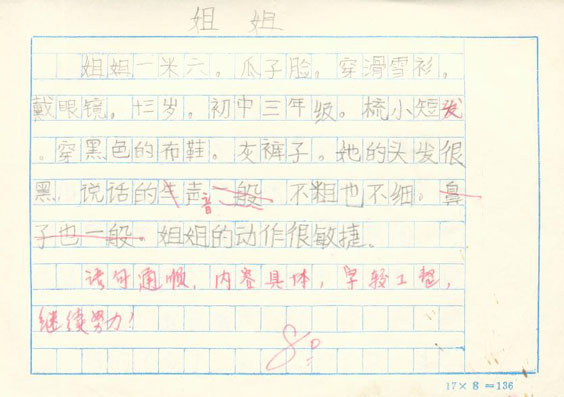 姐姐
姐姐一米六。瓜子脸。穿滑雪衫。
戴眼镜。十三岁。初中三年级。梳小短发
。穿黑色的布鞋。灰裤子。她的头发很
黑。说话的声音一般 不粗也不细。鼻
子也一般。姐姐的动作很敏捷。
语句通顺,内容具体,字较工整,
继续努力!
80
17×8=136